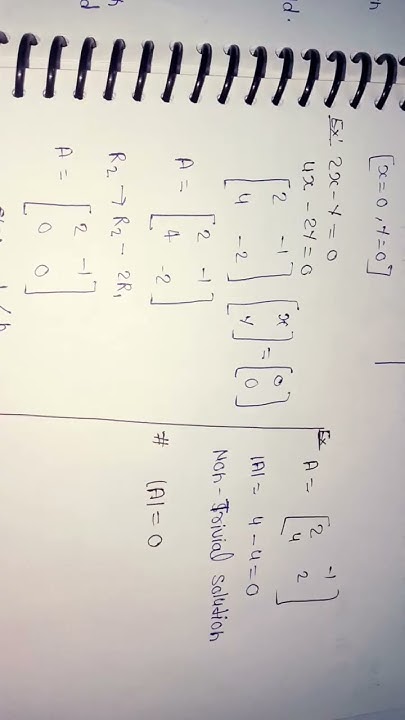 [x=0, y=0]
Ex! 2x - y = 0
4x - 2y = 0
[2 -1
4 -2] [x
y] = [0
0]
A = [2 -1
4 -2]
R2 → R2 - 2R1
A = [2 -1
0 0]
Ex A = [2 -1
4 2]
|A| = 4 - 4 = 0
Non-Trivial solution
# |A| = 0